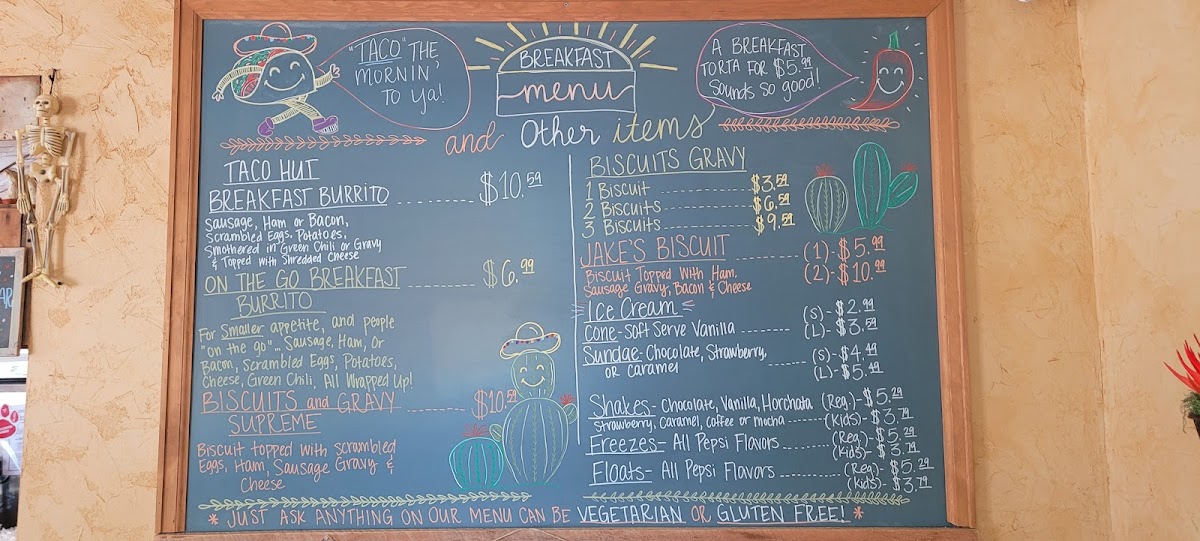 "TACO" THE
MORNIN'
TO YA!
BREAKFAST
menu
and Other items
A BREAKFAST
TORTA FOR $5.99
Sounds so good!
TACO HUT
BREAKFAST BURRITO ........ $10.59
Sausage, Ham or Bacon,
Scrambled Eggs, Potatoes,
Smothered in Green Chili or Gravy
& Topped with Shredded Cheese
ON THE GO BREAKFAST
BURRITO ........ $6.99
For Smaller appetite, and people
"on the go"... Sausage, Ham, Or
Bacon, Scrambled Eggs, Potatoes,
Cheese, Green Chili, All Wrapped Up!
BISCUITS and GRAVY
SUPREME ........ $10.59
Biscuit topped with scrambled
Eggs, Ham, Sausage Gravy &
Cheese
BISCUITS GRAVY
1 Biscuit ........ $3.59
2 Biscuits ........ $6.59
3 Biscuits ........ $9.59
JAKE'S BISCUIT ........ (1)-$5.99
(2)-$10.99
Biscuit Topped With Ham,
Sausage Gravy, Bacon & Cheese
Ice Cream
Cone - Soft Serve Vanilla ........ (S)-$2.99
(L)-$3.59
Sundae - Chocolate, Strawberry,
or Caramel ........ (S)-$4.49
(L)-$5.49
Shakes - Chocolate, Vanilla, Horchata (Reg.)-$5.29
Strawberry, Caramel, Coffee or mocha ........ (Kids)-$3.79
Freezes - All Pepsi Flavors ........ (Reg)-$5.29
(Kids)-$3.79
Floats - All Pepsi Flavors ........ (Reg)-$5.29
(Kids)-$3.79
* JUST ASK ANYTHING ON OUR MENU CAN BE VEGETARIAN OR GLUTEN FREE! *